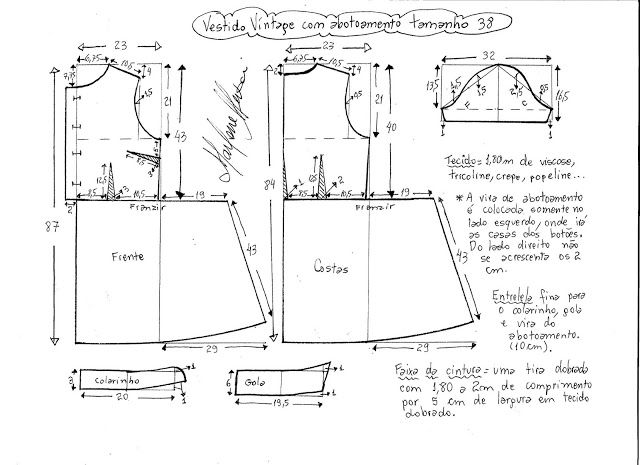 Vestido Vintage com abotoamento tamanho 38
23
6,75
10,5
4
7,75
9,5
21
43
12,5
8,5
3
10,5
19
2
Franzir
87
Frente
43
29
23
6,75
10,5
4
2
9,5
21
40
84
8,5
1
2
10,5
19
Franzir
Costas
43
29
32
13,5
1,5
1,5
2,5
0,5
16,5
F
C
1
1
Tecido: 1,80 m de viscose,
tricoline, crepe, popeline...
* A vira de abotoamento
é colocada somente no
lado esquerdo, onde irá
as casas dos botões.
Do lado direito não
se acrescenta os 2
cm.
Entretela fina para
o colarinho, gola
e vira do
abotoamento.
(10cm).
3
Colarinho
1
1
20
6
Gola
1
1
19,5
Faixa da cintura = uma tira dobrada
com 1,80 a 2m de comprimento
por 5 cm de largura em tecido
dobrado.